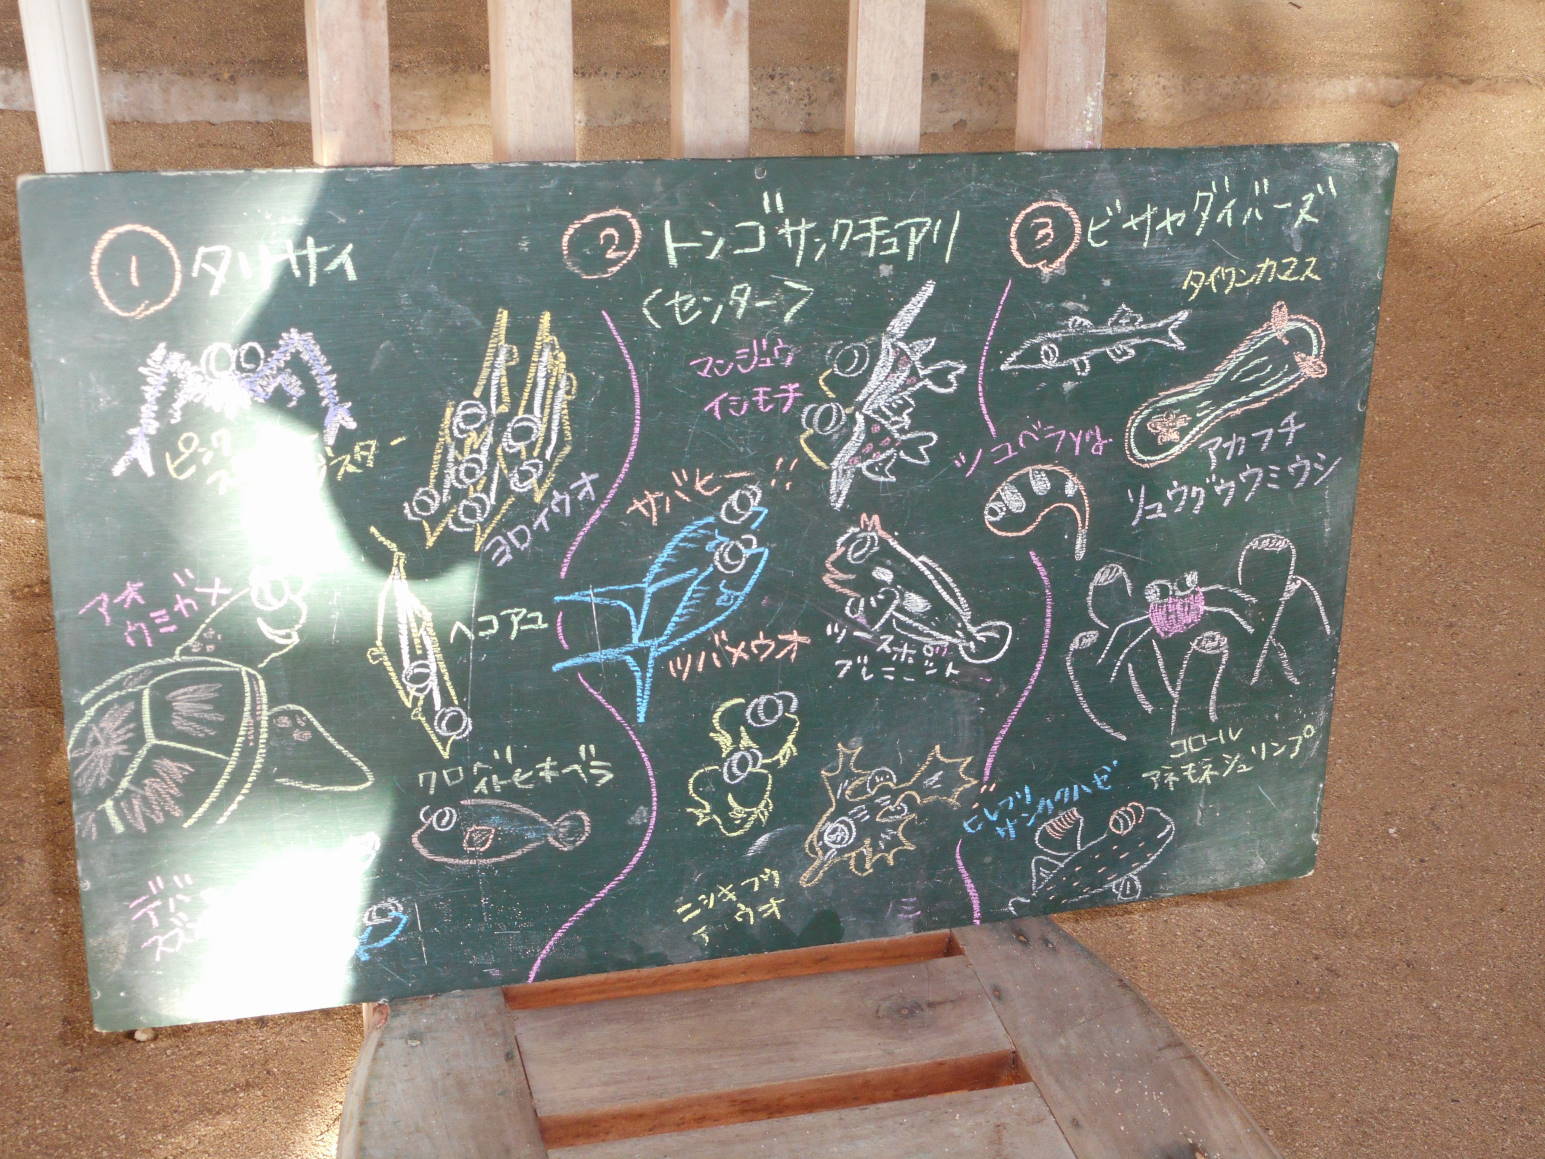 ① タリサイ
ピンク
スター
ヨロイウオ
アオ
ウミガメ
ヘコアユ
クロヘリイトヒキベラ
デバ
スズ
② トンゴサンクチュアリ
〈センター〉
マンジュウ
イシモチ
サバヒー!!
ツバメウオ
ツースポット
ブレニー
ニシキフウ
ライウオ
③ ビサヤダイバーズ
タイワンカマス
アカフチ
リュウグウウミウシ
コロール
アネモネシュリンプ
ヒレフリ
サンカクハゼ